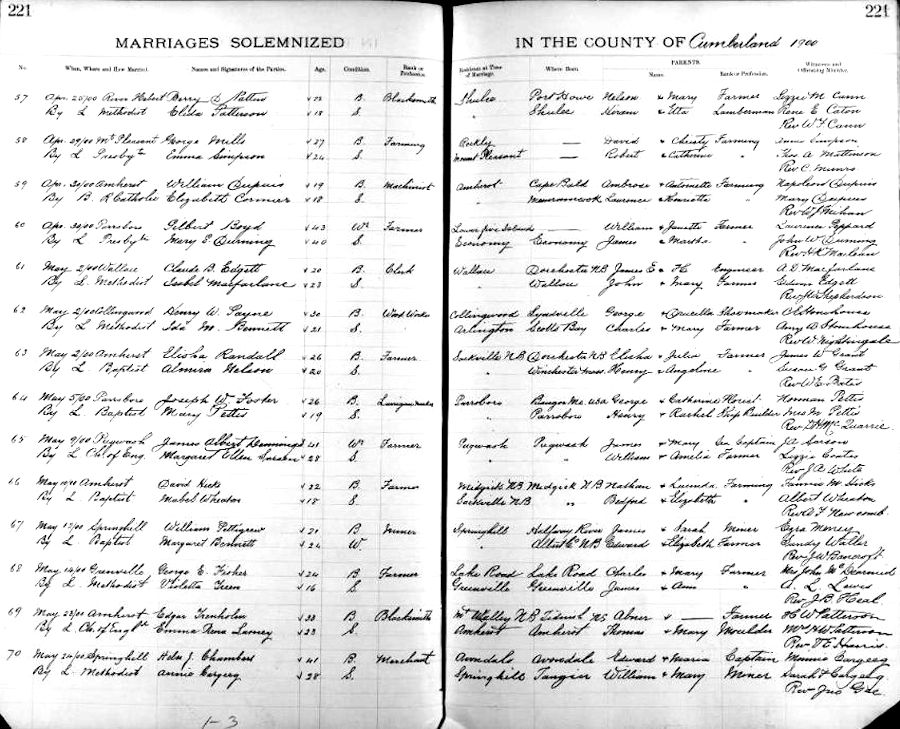 221
221
MARRIAGES SOLEMNIZED
IN THE COUNTY OF Cumberland 1900
No. When, Where and How Married. Names and Signatures of the Parties. Age. Condition. Rank or Profession. Residence at Time of Marriage. Where Born. PARENTS. Name. Rank or Profession. Witnesses and Officiating Minister.
57 Apr. 25/00 River Hebert B. Blacksmith Shulie Port Howe Nelson & Mary Farmer Lizzie M. Cunn
By L Methodist Elida Patterson 18 S. " Shulee Hiram & Etta Lumberman Rene E Coton
Rev W F Cunn
58 Apr. 29/00 Mt Pleasant George Mills 27 B. Farming Rockley — David & Christy Farming Annie Simpson
By L Presbytn Emma Simpson 24 S. Mount Pleasant — Robert & Catherine " Thos A Mattinson
Rev C. Munro
59 Apr. 30/00 Amherst William Dupuis 19 B. Machinist Amherst Cape Bald Ambrose & Antoinette Farming Napoleon Dupuis
By B. R Catholic Elizabeth Cormier 18 S. " Memramcook Laurence & Henriette " Mary Dupuis
Rev W J Mihan
60 Apr. 30/00 Parrsboro Gilbert Boyd 43 Wr Farmer Lower five Islands — William & Janette Farmer Laurence Peppard
By L Presbytn Mary E. Durning 40 S. Economy Economy James & Martha " John W Durning
Rev H K Maclean
61 May 2/00 Wallace Claude B. Edgett 20 B. Clerk Wallace Dorchester NB James E & H Engineer A D Macfarlane
By L. Methodist Isobel Macfarlane 23 S. " Wallace John & Mary Farmer Edwin Edgett
62 May 2/00 Collingwood Henry W. Payne 30 B. Wood Worker Collingwood Lyndville George & Shoemaker
By L Methodist Ida M. Bennett 21 S. Arlington Scotts Bay Charles & Mary Farmer Amy A Stonehouse
Rev W Nightingale
63 May 2/00 Amherst Elisha Randall 26 B. Farmer Sackville NB Dorchester NB Elisha & Julia Farmer James W Grant
By L Baptist Almira Nelson 20 S. " Winchester Mass. Henry & Angeline " Susan G Grant
Rev W E Bates
64 May 5/00 Parrsboro Joseph W. Foster 26 B. Parrsboro Bangor Me. USA George & Catharine Norman Pettis
By L Baptist Mary Pettis 19 S. " Parrsboro Henry & Rachel Ship Builder Mrs M Pettis
65 May 9/00 Pugwash James Albert Hennings 41 Wr Farmer Pugwash Pugwash James & Mary Sea Captain J A Sarson
By L Ch. of Eng. Margaret Ellen 28 S. " " William & Amelia Farmer Lizzie Coates
Rev J A White
66 May 10/00 Amherst David Hicks 22 B. Farmer Midgick NB Midgick NB Nathan & Lucinda Farming Fannie M Hicks
By L Baptist Mabel Wheaton 18 S. Sackville NB " Bedford & Elizabeth " Albert Wheaton
67 May 12/00 Springhill William Pettigrew 21 B Miner Springhill Halfway River James & Sarah Miner Ezra Money
By L Baptist Margaret Bennett 24 W. " Albert Co NB Edward & Elizabeth Farmer Sandy Waller
Rev J W Bancroft
68 May 14/00 Greenville George E. Fisher 24 B. Farmer Lake Road Lake Road Charles & Mary Farmer Mrs John McDearmid
By L. Methodist Violetta Green 16 S. Greenville Greenville James & Ann " A. L Lewis
Rev J. B Heal.
69 May 23/00 Amherst Edgar Trenholm 33 B Blacksmith Mt Walley NB Tidnish NS Abner & — Farmer H W Patterson
By L. Ch. of Engld. Emma Rena 23 S. Amherst Amherst Thomas & Mary Moulder Mrs H W Patterson
Rev V E Harris
70 May 24/00 Springhill J. Chambers 41 B. Merchant Avondale Avondale Edward & Maria Captain Minnie Cargeeg
By L Methodist Annie Cargeeg 28 S. Springhill Tangier William & Mary Miner Sarah F Cargeeg
Rev Jno Gee
1-3